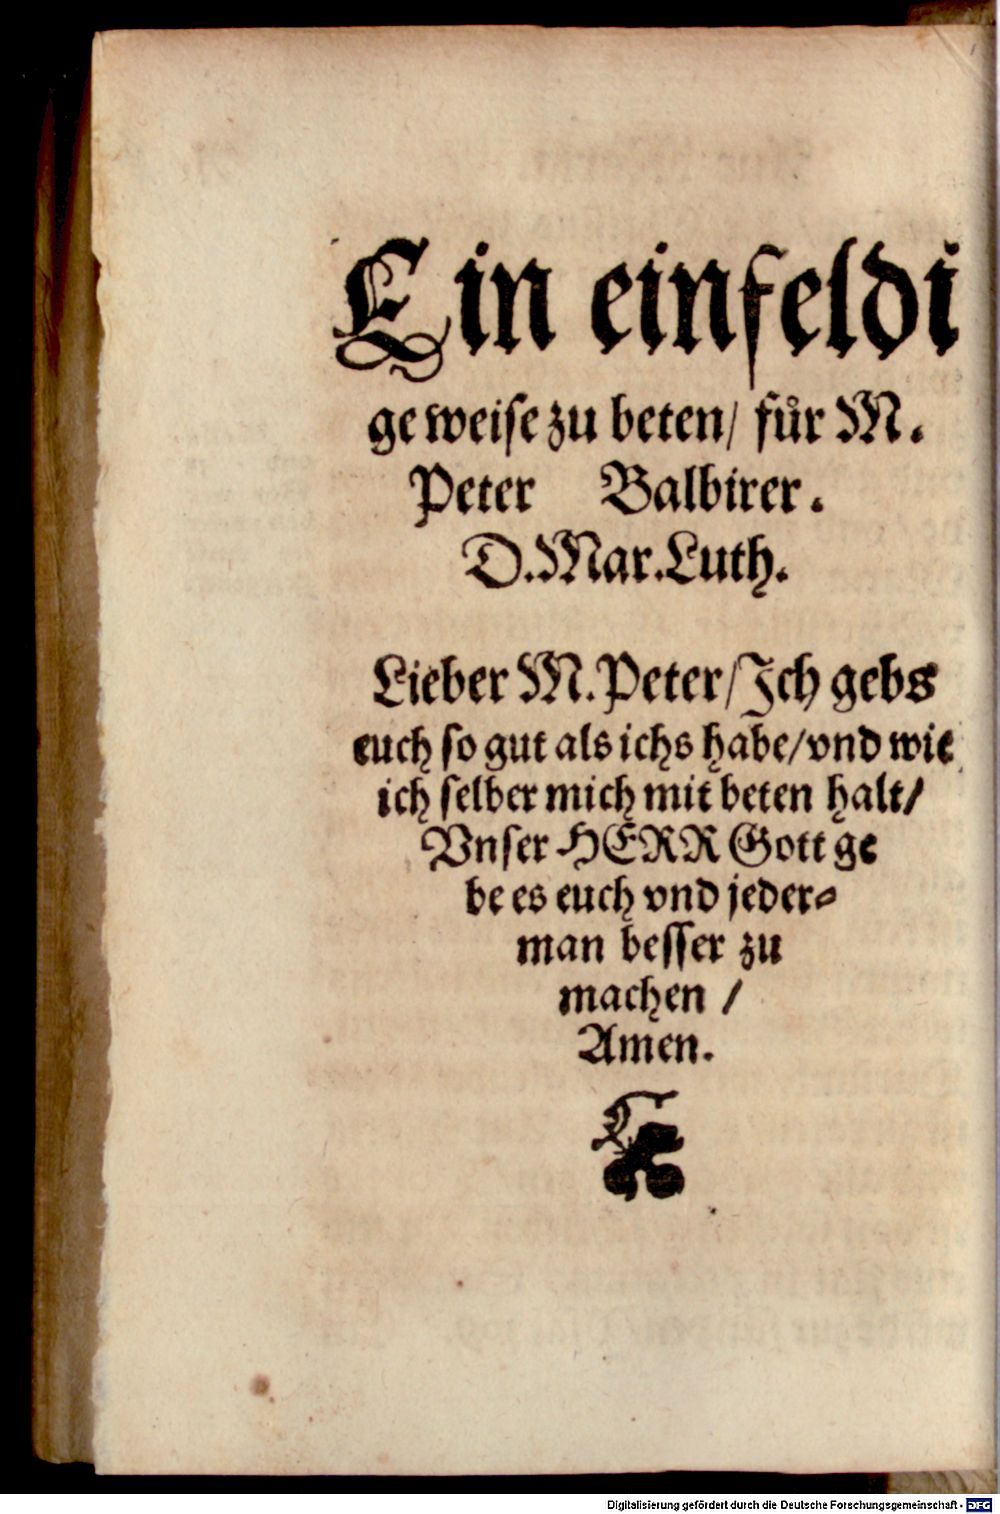 Ein einfeldi
ge weise zu beten/ fuͤr M.
Peter Balbirer.
D. Mar. Luth.
Lieber M. Peter/ Ich gebs
euch so gut als ichs habe/ vnd wie
ich selber mich mit beten halt/
Vnser HERR Gott ge
be es euch vnd jeder⸗
man besser zu
machen /
Amen.
Digitalisierung gefördert durch die Deutsche Forschungsgemeinschaft - DFG